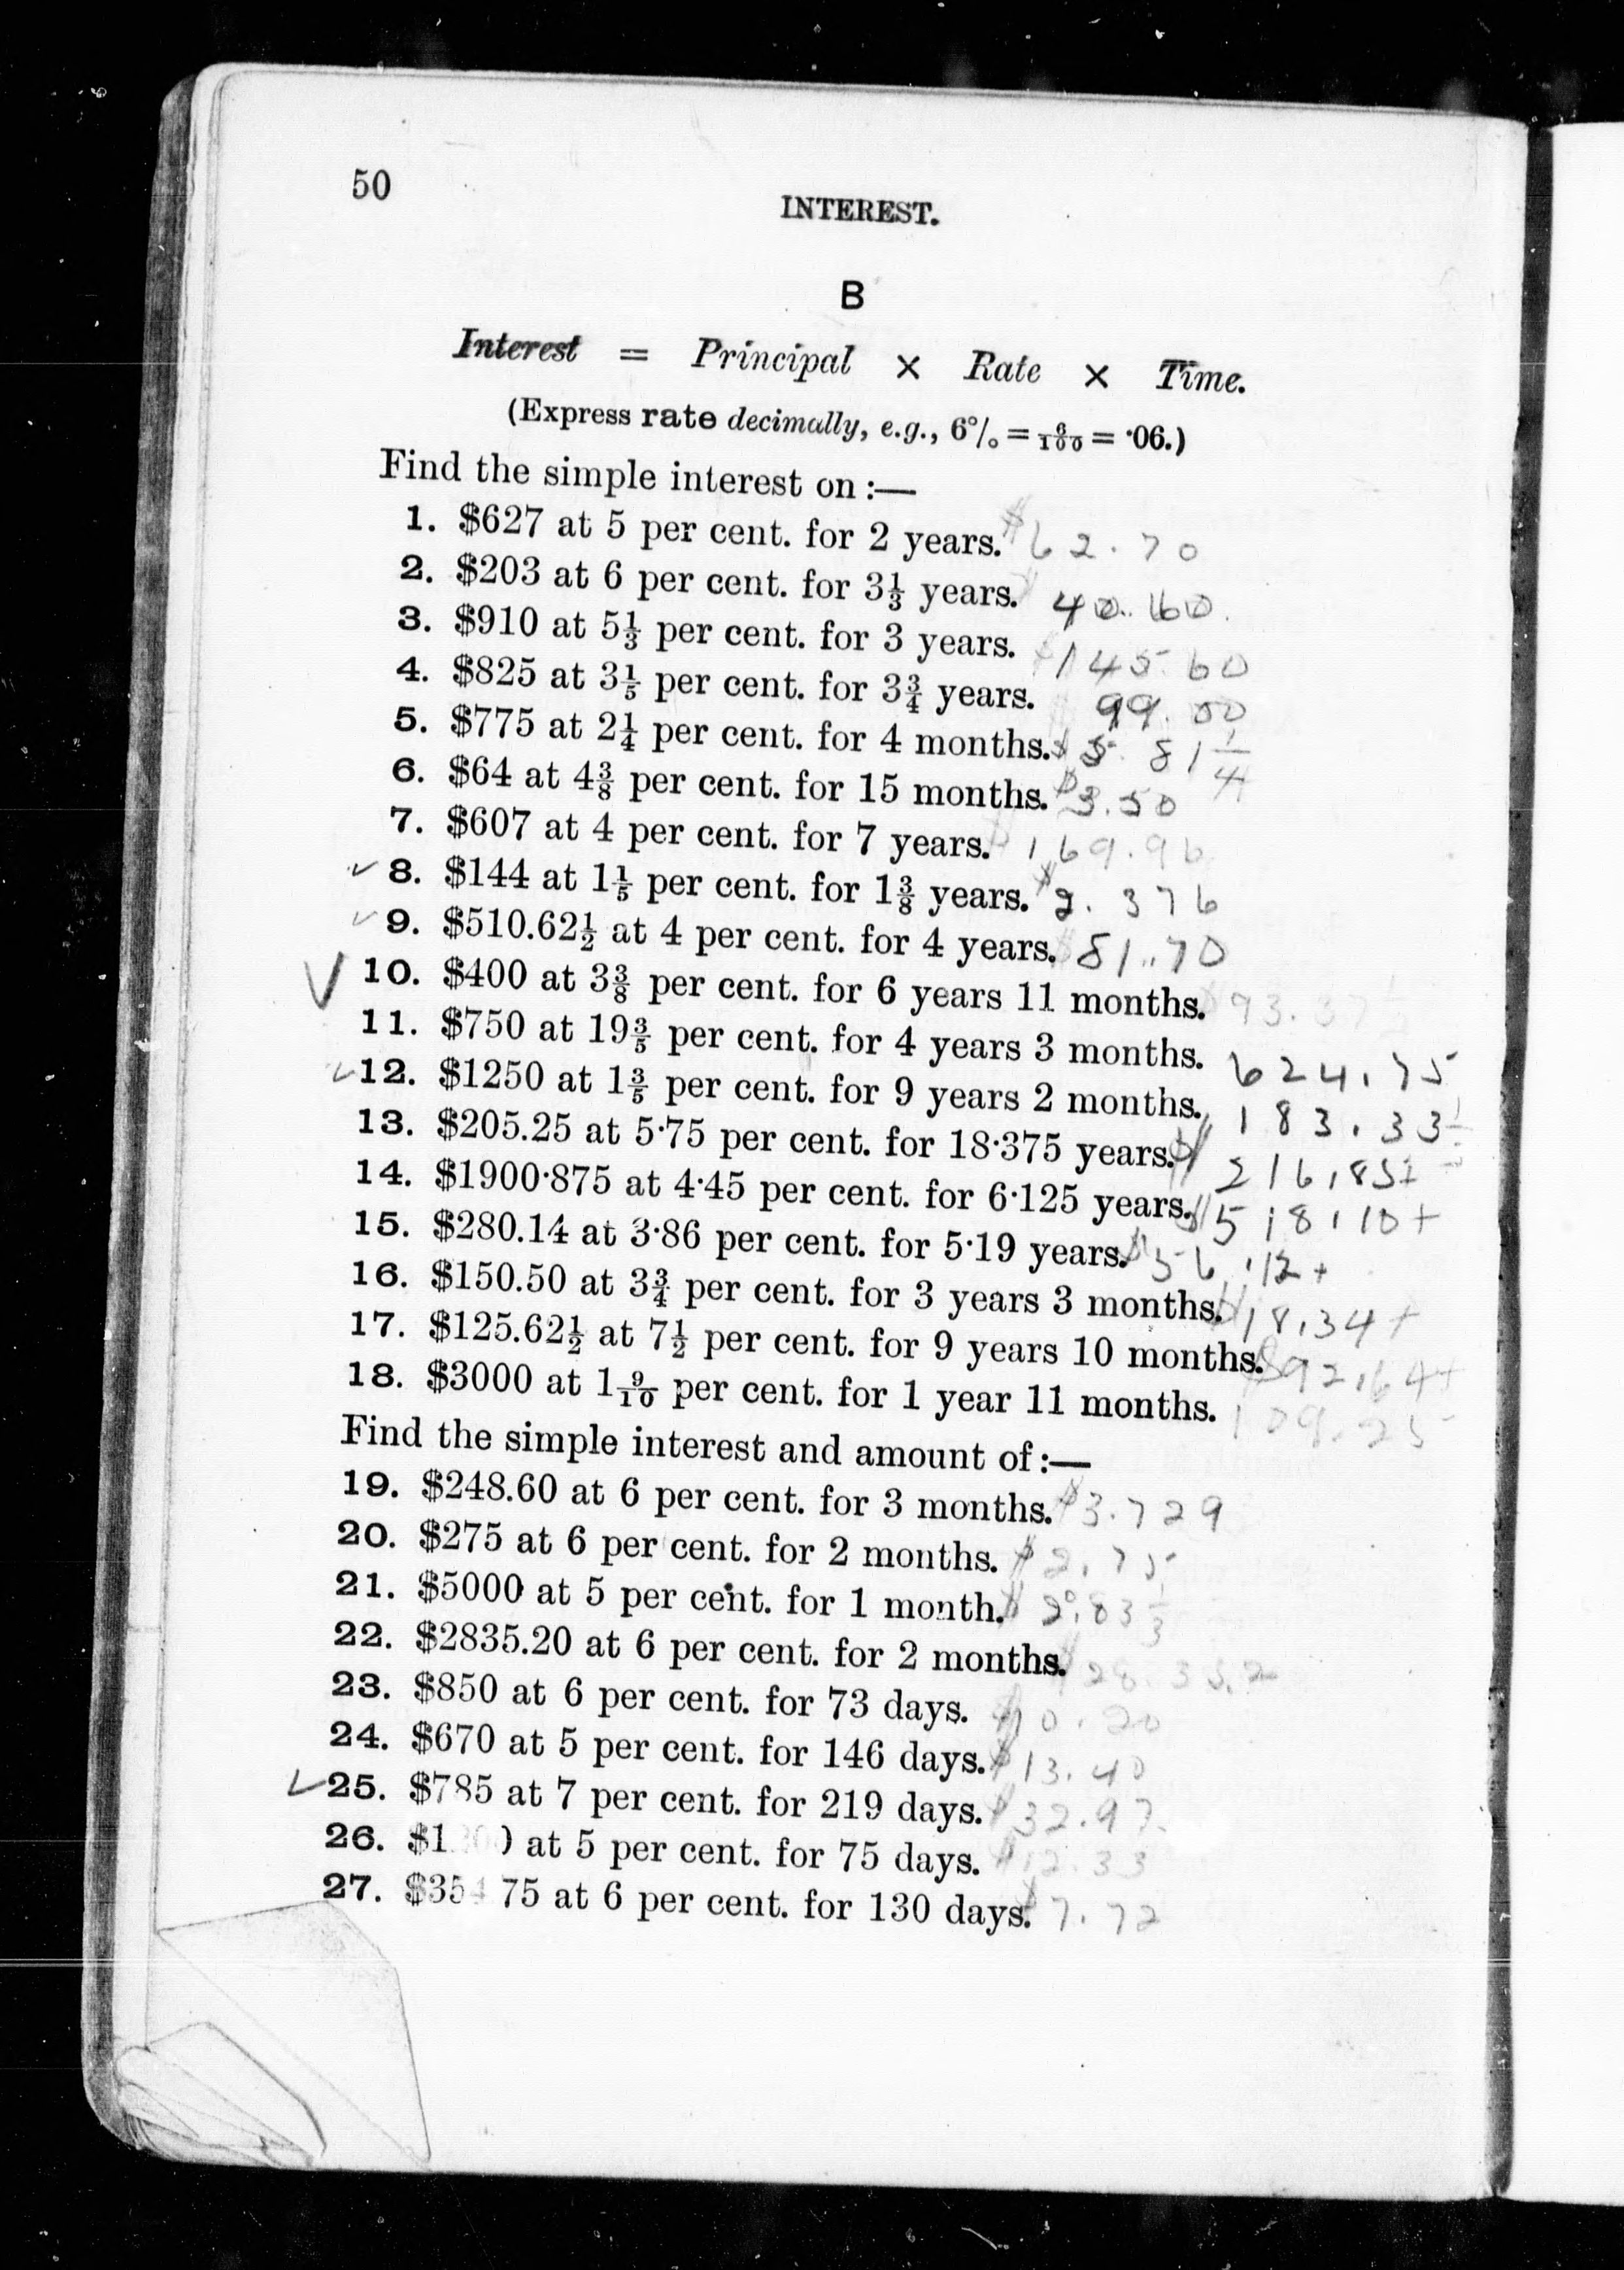 50
INTEREST.
B
Interest = Principal × Rate × Time.
(Express rate decimally, e.g., 6% = 6/100 = ·06.)
Find the simple interest on :—
1. $627 at 5 per cent. for 2 years. $62.70
2. $203 at 6 per cent. for 3⅓ years. 40.60
3. $910 at 5⅓ per cent. for 3 years. $145.60
4. $825 at 3⅕ per cent. for 3¾ years. 99.00
5. $775 at 2¼ per cent. for 4 months. $5.81¼
6. $64 at 4⅜ per cent. for 15 months. $3.50
7. $607 at 4 per cent. for 7 years. $169.96
✓ 8. $144 at 1⅕ per cent. for 1⅜ years. $2.376
✓ 9. $510.62½ at 4 per cent. for 4 years. $81.70
✓ 10. $400 at 3⅜ per cent. for 6 years 11 months. $93.37½
11. $750 at 19⅗ per cent. for 4 years 3 months. 624.75
✓ 12. $1250 at 1⅗ per cent. for 9 years 2 months. 183.33
13. $205.25 at 5·75 per cent. for 18·375 years. $216.85
14. $1900·875 at 4·45 per cent. for 6·125 years. $518.10+
15. $280.14 at 3·86 per cent. for 5·19 years. $56.12+
16. $150.50 at 3¾ per cent. for 3 years 3 months. $18.34+
17. $125.62½ at 7½ per cent. for 9 years 10 months. $92.64+
18. $3000 at 1 9/10 per cent. for 1 year 11 months. 109.25
Find the simple interest and amount of :—
19. $248.60 at 6 per cent. for 3 months. $3.729
20. $275 at 6 per cent. for 2 months. $2.75
21. $5000 at 5 per cent. for 1 month. $20.83⅓
22. $2835.20 at 6 per cent. for 2 months. $28.35.2
23. $850 at 6 per cent. for 73 days. $10.20
24. $670 at 5 per cent. for 146 days. $13.40
✓ 25. $785 at 7 per cent. for 219 days. $32.97
26. at 5 per cent. for 75 days. $12.33
27. $354 75 at 6 per cent. for 130 days. $7.72